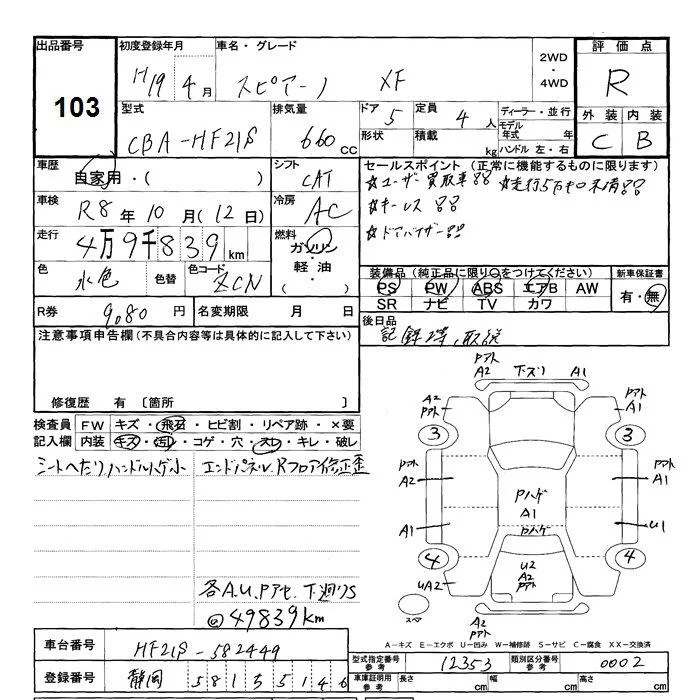 出品番号 初度登録年月 車名・グレード 2WD・4WD 評価点
103 H19 4月 スピアーノ XF R
型式 排気量 ドア 5 定員 4人 ディーラー・並行 外装 内装
CBA-HF21S 660cc 形状 積載 kg モデル年式 年 ハンドル 左・右 C B
車歴 自家用・( ) シフト CAT セールスポイント (正常に機能するものに限ります)
☆ユーザー買取車!! ☆走行5万キロ未満!!
車検 R8年10月(12日) 冷房 AC ☆キーレス!!
走行 4万9千839km 燃料 ガソリン・軽油・( ) ☆ドアバイザー!!
色 水色 色替 色コード ZCN 装備品 (純正品に限り○をつけてください) 新車保証書
PS PW ABS エアB AW 有・無
SR ナビ TV カワ
R券 9,080円 名変期限 月 日 後日品
記録簿、取説
注意事項申告欄 (不具合内容等は具体的に記入して下さい)
修復歴 有 〔箇所 〕
検査員記入欄 FW キズ・飛石・ヒビ割・リペア跡・×要
内装 キズ・汚れ・コゲ・穴・スレ・キレ・破レ
シートへたり、ハンドルハゲ小 エンドパネル、Rフロア修正歪
各A.U.Pアセ、下廻りS
@49839km
Pアト A2 下ズリ A1
A2 Pアト Pアト A1
3 3
Pアト A2 Pアト A1
PハゲA1
A1 Pハゲ U1
4 4
UA2 U2 A2 Pアト A1
スペア
A2 Pアト
A－キズ E－エクボ U－凹み W－補修跡 S－サビ C－腐食 XX－交換済
車台番号 HF21S-582449 型式指定番号 参考 12353 類別区分番号 参考 0002
登録番号 静岡 581 5146 車庫証明用 参考 長さ cm 幅 cm 高さ cm